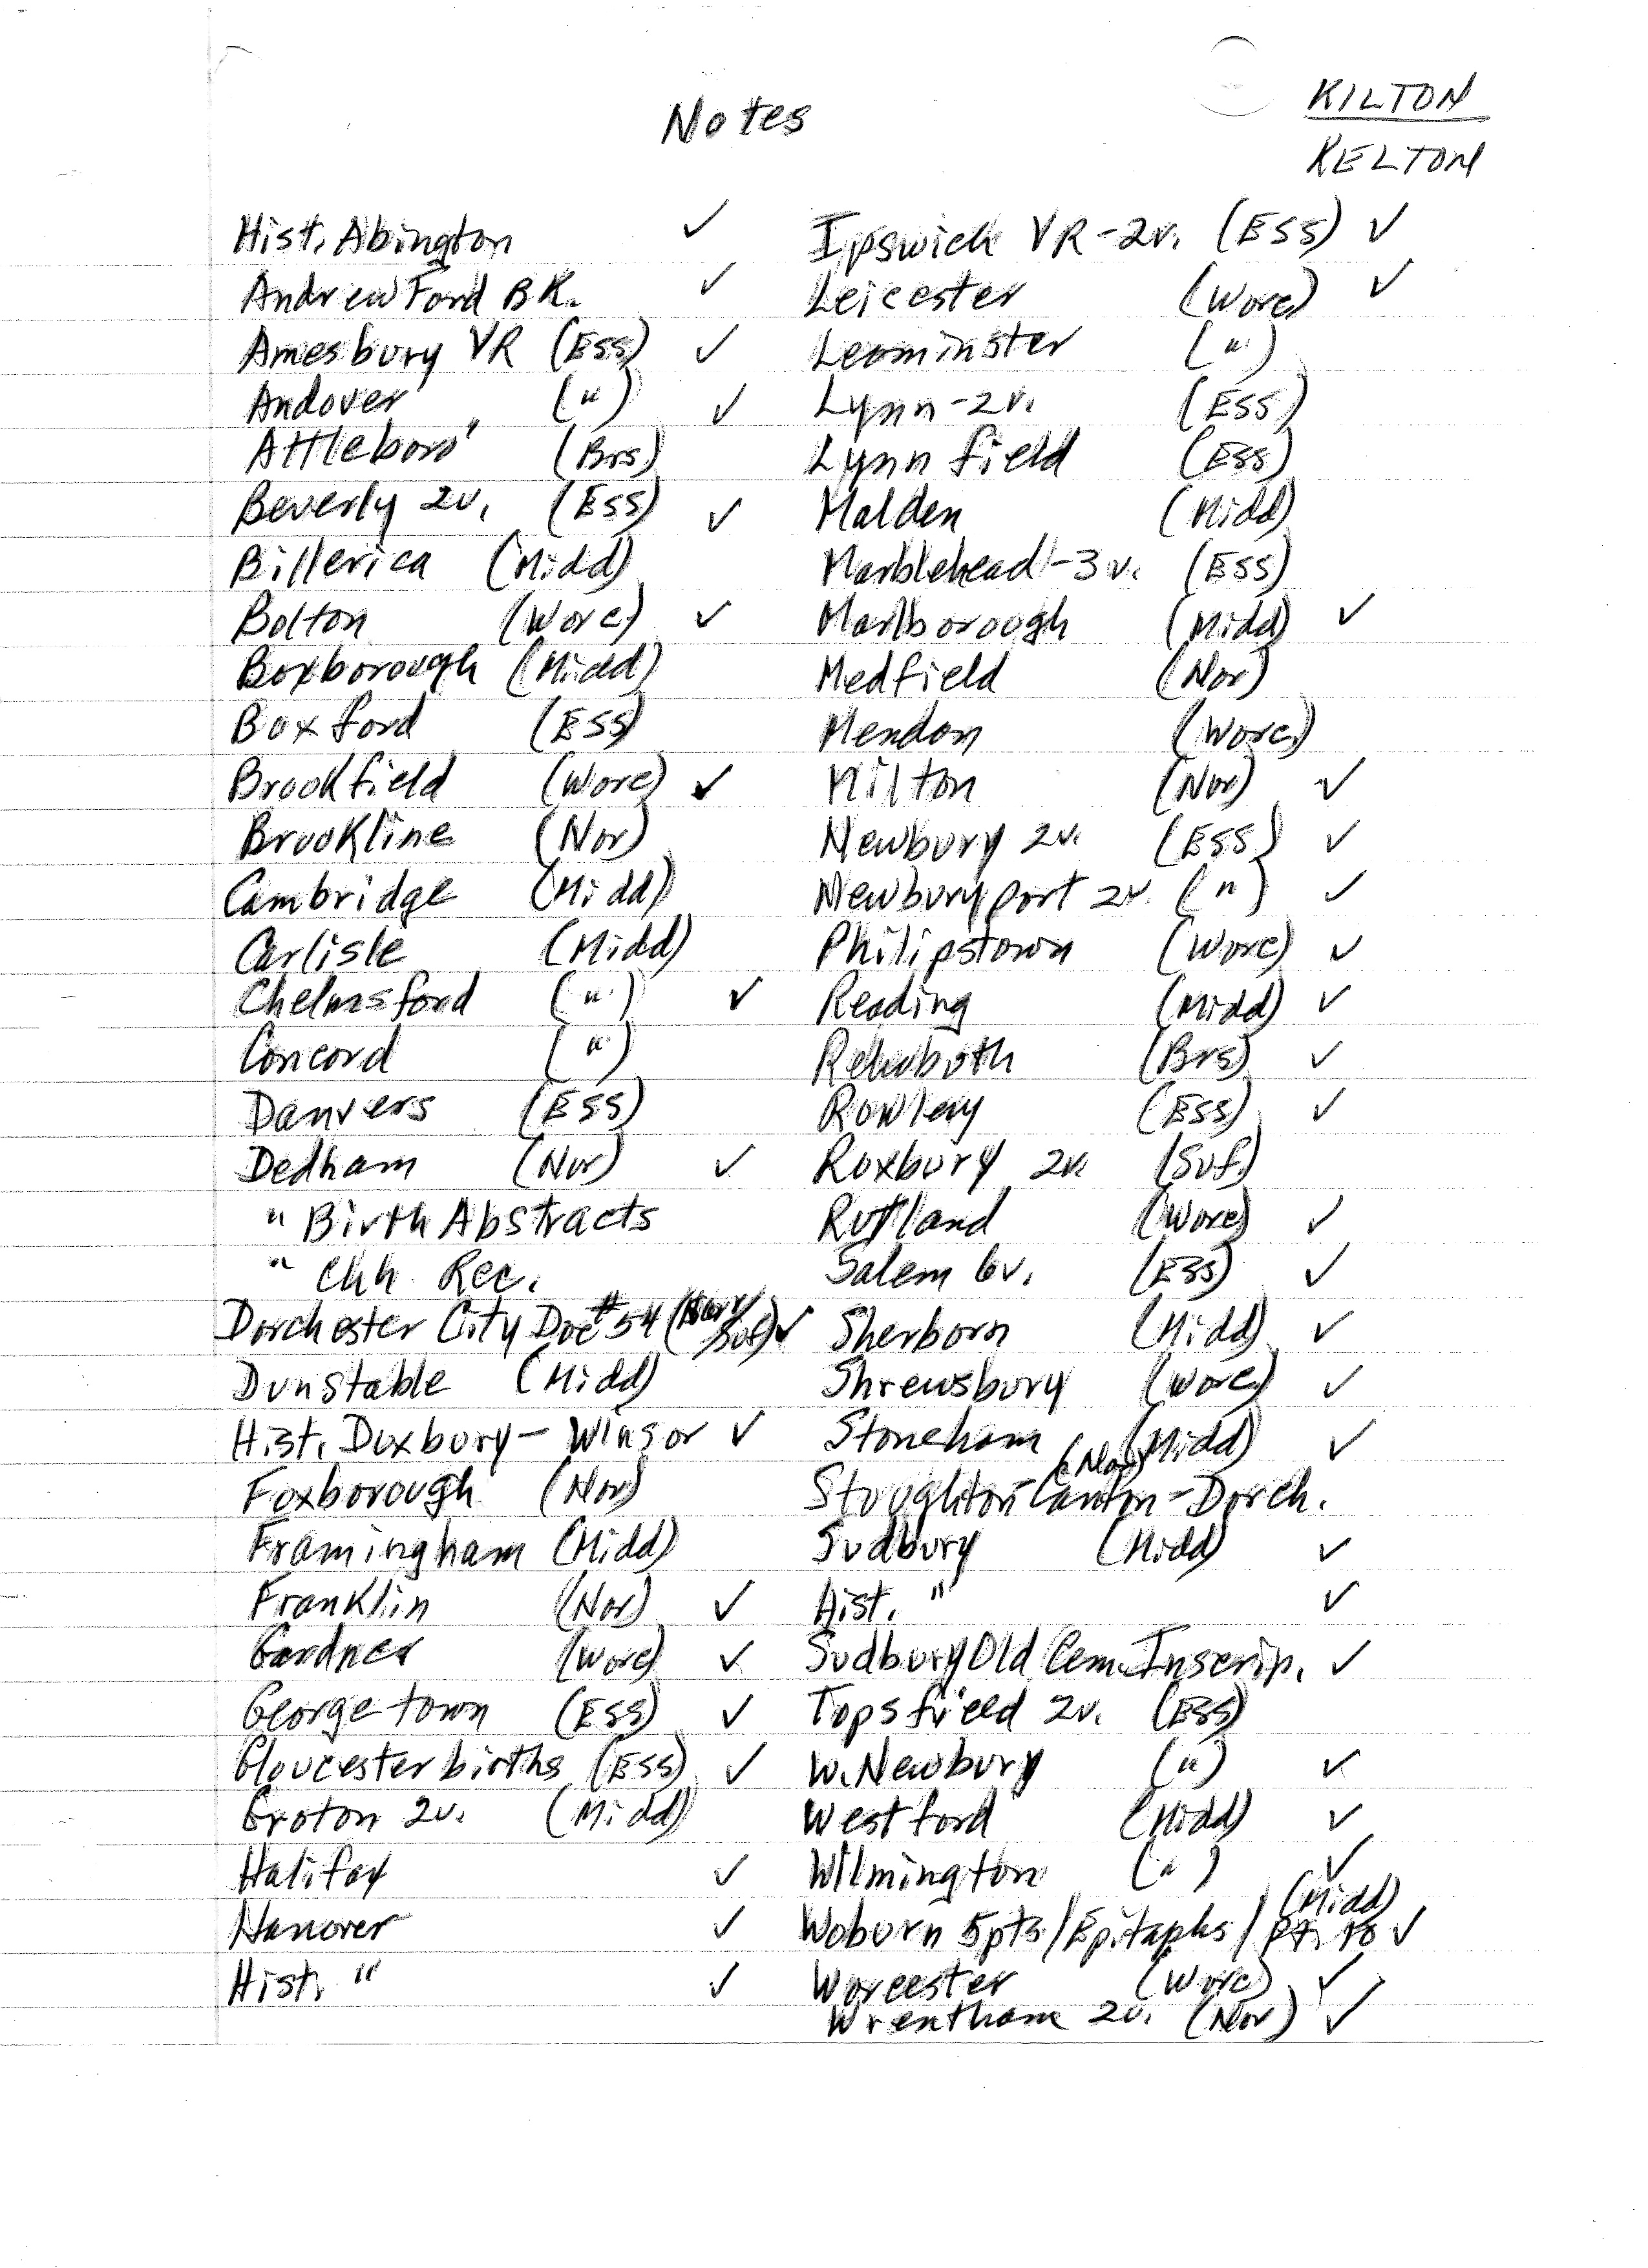 Notes
KILTON
KELTON
Hist. Abington ✓
Andrew Ford BK. ✓
Amesbury VR (Ess) ✓
Andover (") ✓
Attleboro' (Brs)
Beverly 2v. (Ess) ✓
Billerica (Midd)
Bolton (Worc) ✓
Boxborough (Midd)
Boxford (Ess)
Brookfield (Worc) ✓
Brookline (Nor)
Cambridge (Midd)
Carlisle (Midd)
Chelmsford (") ✓
Concord (")
Danvers (Ess)
Dedham (Nor) ✓
" Birth Abstracts
" Chh. Rec.
Dorchester City Doc #54 (Nor/Suf) ✓
Dunstable (Midd)
Hist. Duxbury - Winsor ✓
Foxborough (Nor)
Framingham (Midd)
Franklin (Nor) ✓
Gardner (Worc) ✓
Georgetown (Ess) ✓
Gloucester births (Ess) ✓
Groton 2v. (Midd)
Halifax ✓
Hanover ✓
Hist. " ✓
Ipswich VR - 2v. (Ess) ✓
Leicester (Worc) ✓
Leominster (")
Lynn - 2v. (Ess)
Lynnfield (Ess)
Malden (Midd)
Marblehead - 3v. (Ess)
Marlborough (Midd) ✓
Medfield (Nor)
Mendon (Worc)
Milton (Nor) ✓
Newbury 2v. (Ess) ✓
Newburyport 2v. (") ✓
Philipstown (Worc) ✓
Reading (Midd) ✓
Rehoboth (Brs) ✓
Rowley (Ess) ✓
Roxbury 2v. (Suf.)
Rutland (Worc) ✓
Salem 6v. (Ess) ✓
Sherborn (Midd) ✓
Shrewsbury (Worc.) ✓
Stoneham (Midd) ✓
Stoughton - Canton - Dorch. (Nor)
Sudbury (Midd) ✓
Hist. " ✓
Sudbury Old Cem. Inscrip. ✓
Topsfield 2v. (Ess)
W. Newbury (") ✓
Westford (Midd) ✓
Wilmington (") ✓
Woburn 5pts / Epitaphs / Pt. 10 (Midd) ✓
Worcester (Worc) ✓
Wrentham 2v. (Nor) ✓